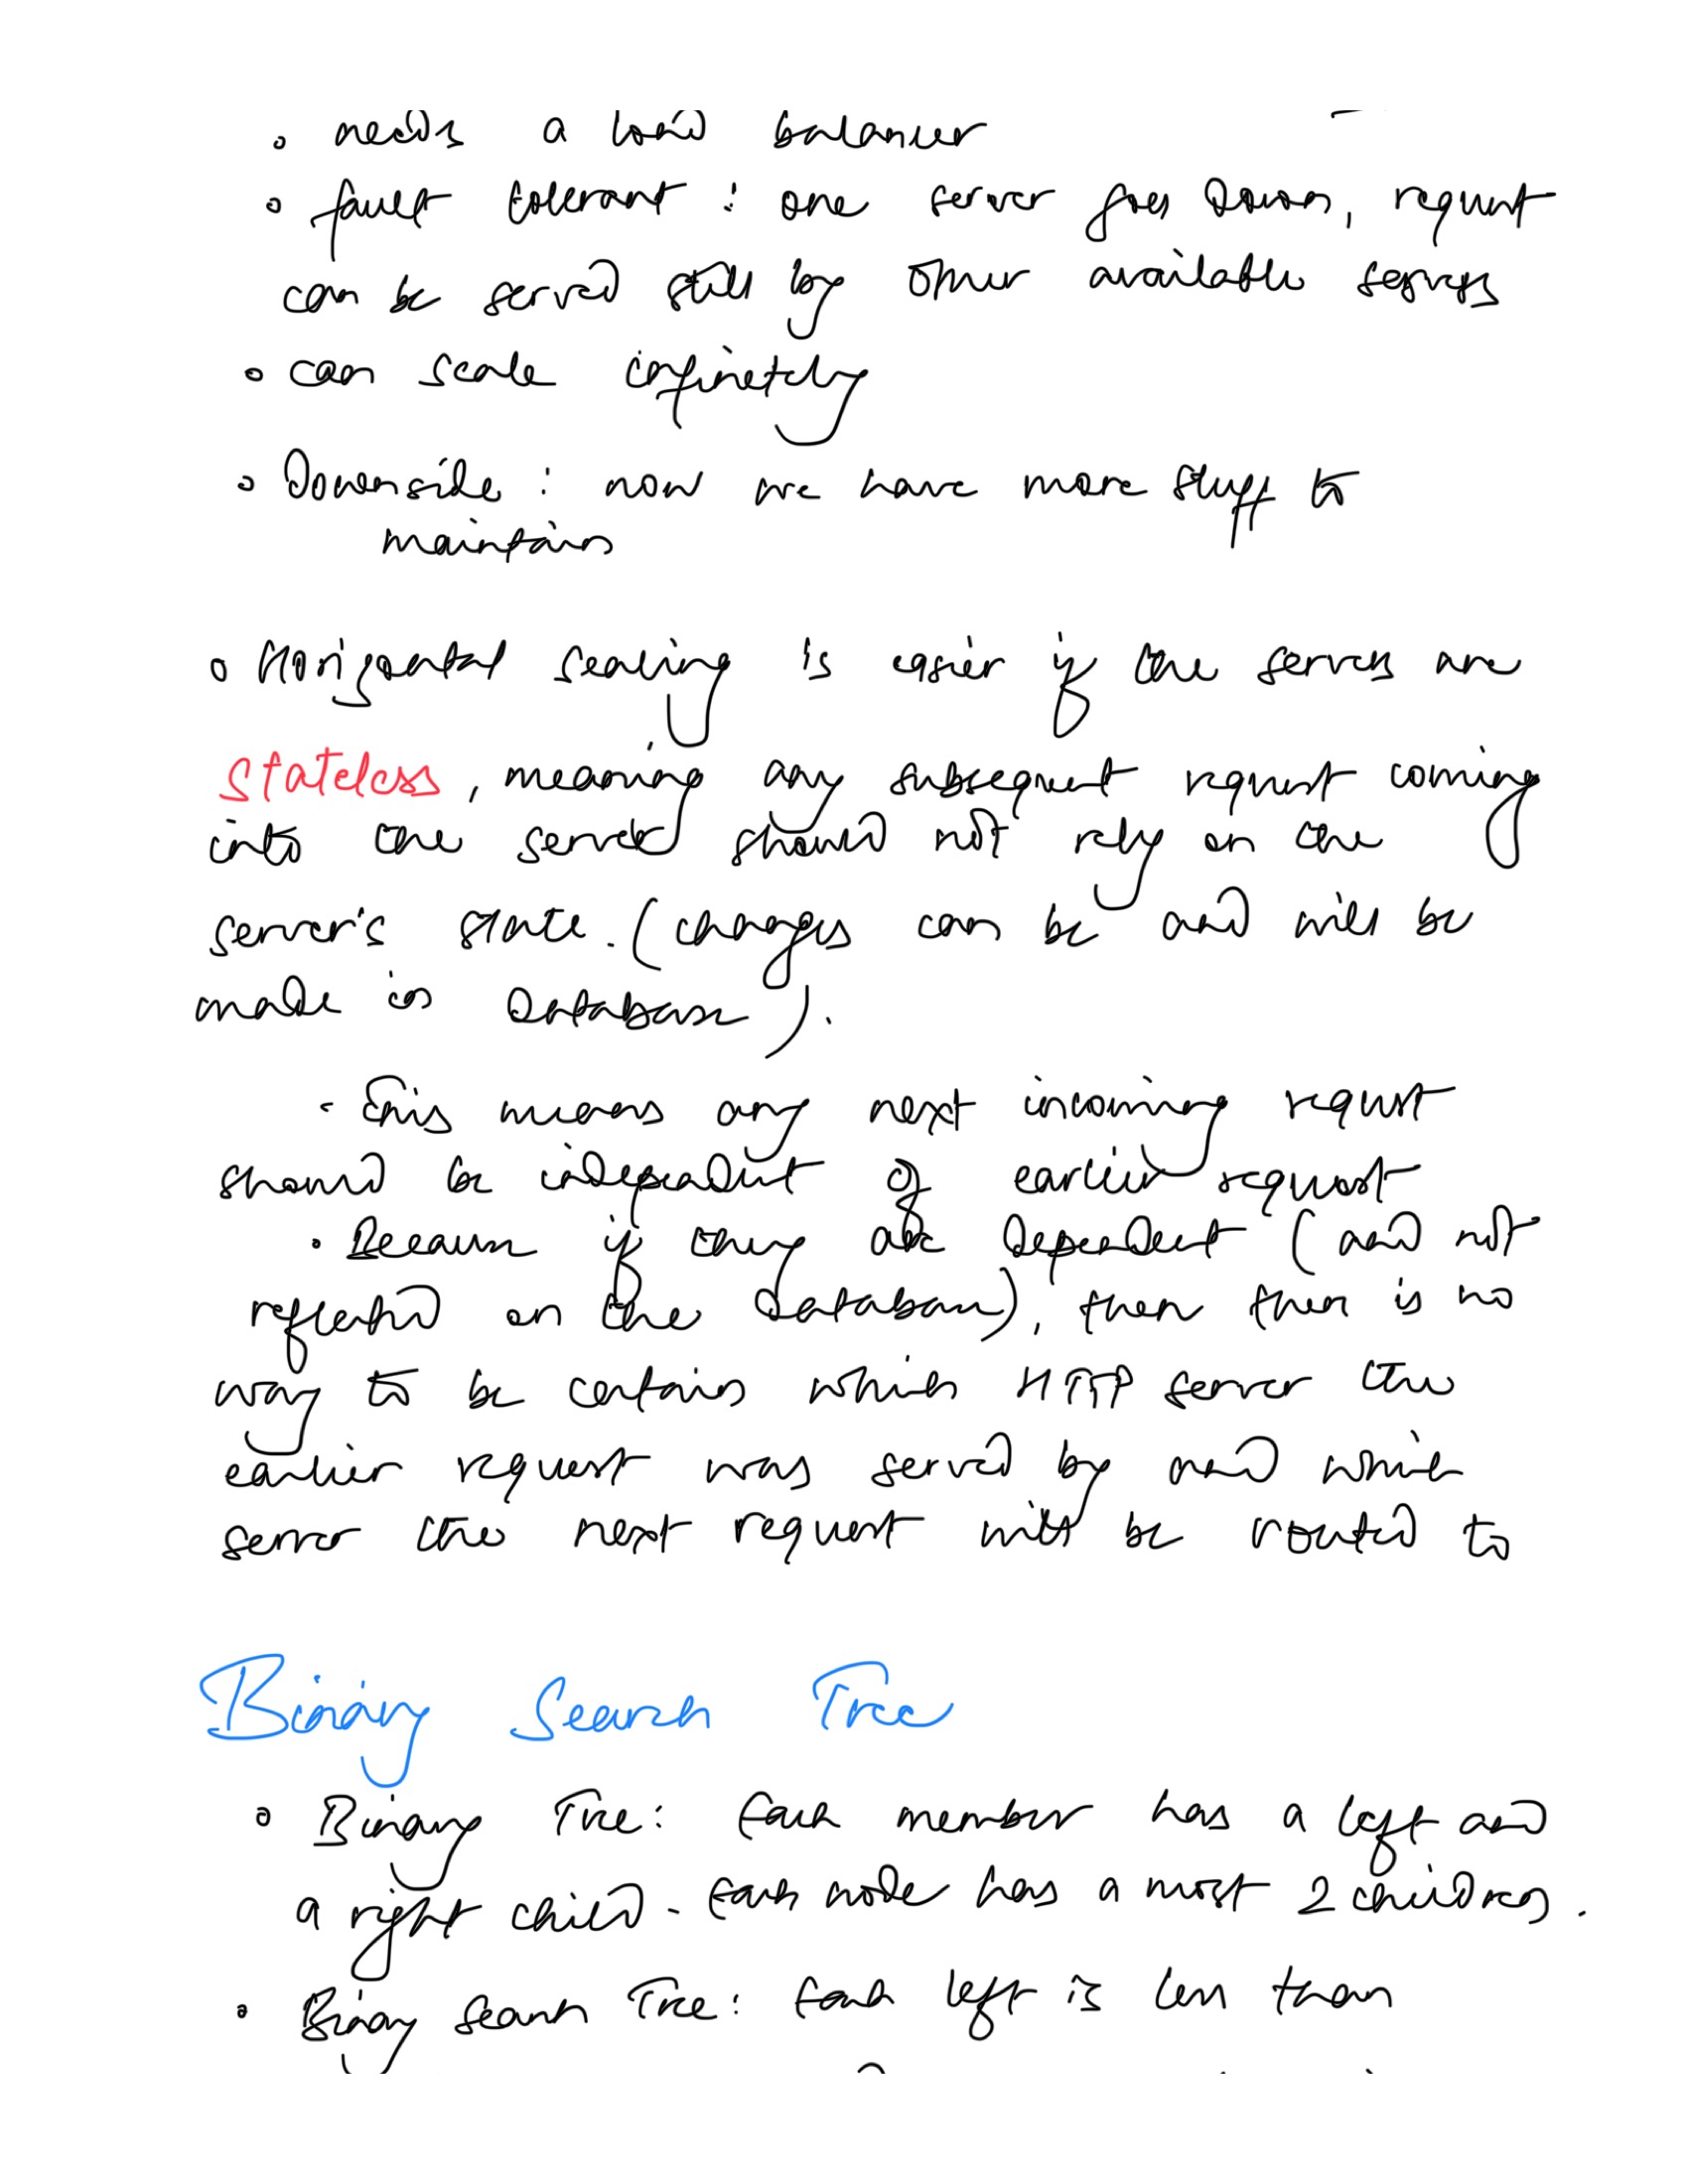 • needs a load balancer
• fault tolerant : one server goes down, request
can be served still by other available servers
• can scale infinetely
• Downside : now we have more stuff to
maintain
• Horizontal scaling is easier if the servers are
stateless, meaning any subsequent request coming
into the server should not rely on the
server's state. (changes can be and will be
made in Database).
• This means any next incoming request
should be independent of earlier request
• Because if they are dependent (and not
reflected on the database), then there is no
way to be certain which HTTP server the
earlier request was served by and which
server the next request will be routed to
Binary Search Tree
• Binary Tree: Each member has a left and
a right child. Each node has a most 2 children.
• Binary Search Tree: Each left is less than